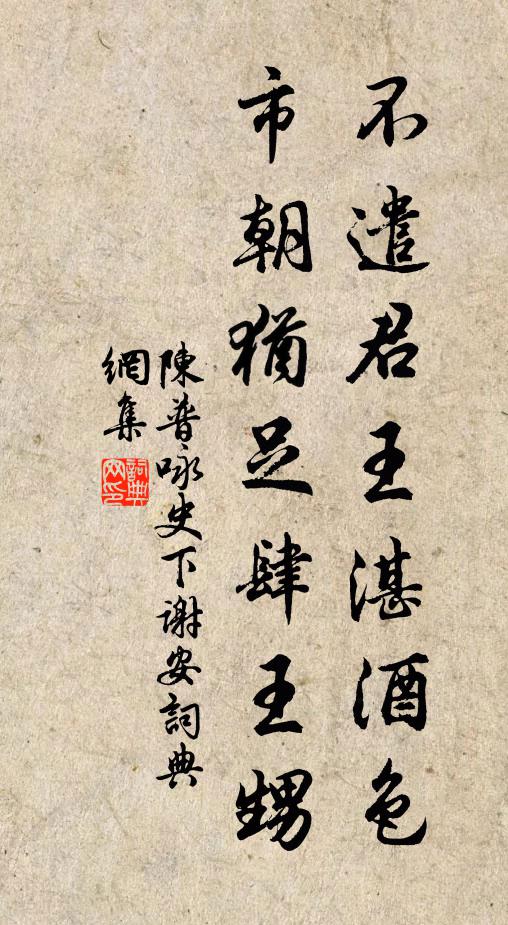 不遣君王湛酒色
市朝猶足肆王甥
陳普咏史下謝安詞典
網集
詞典網印